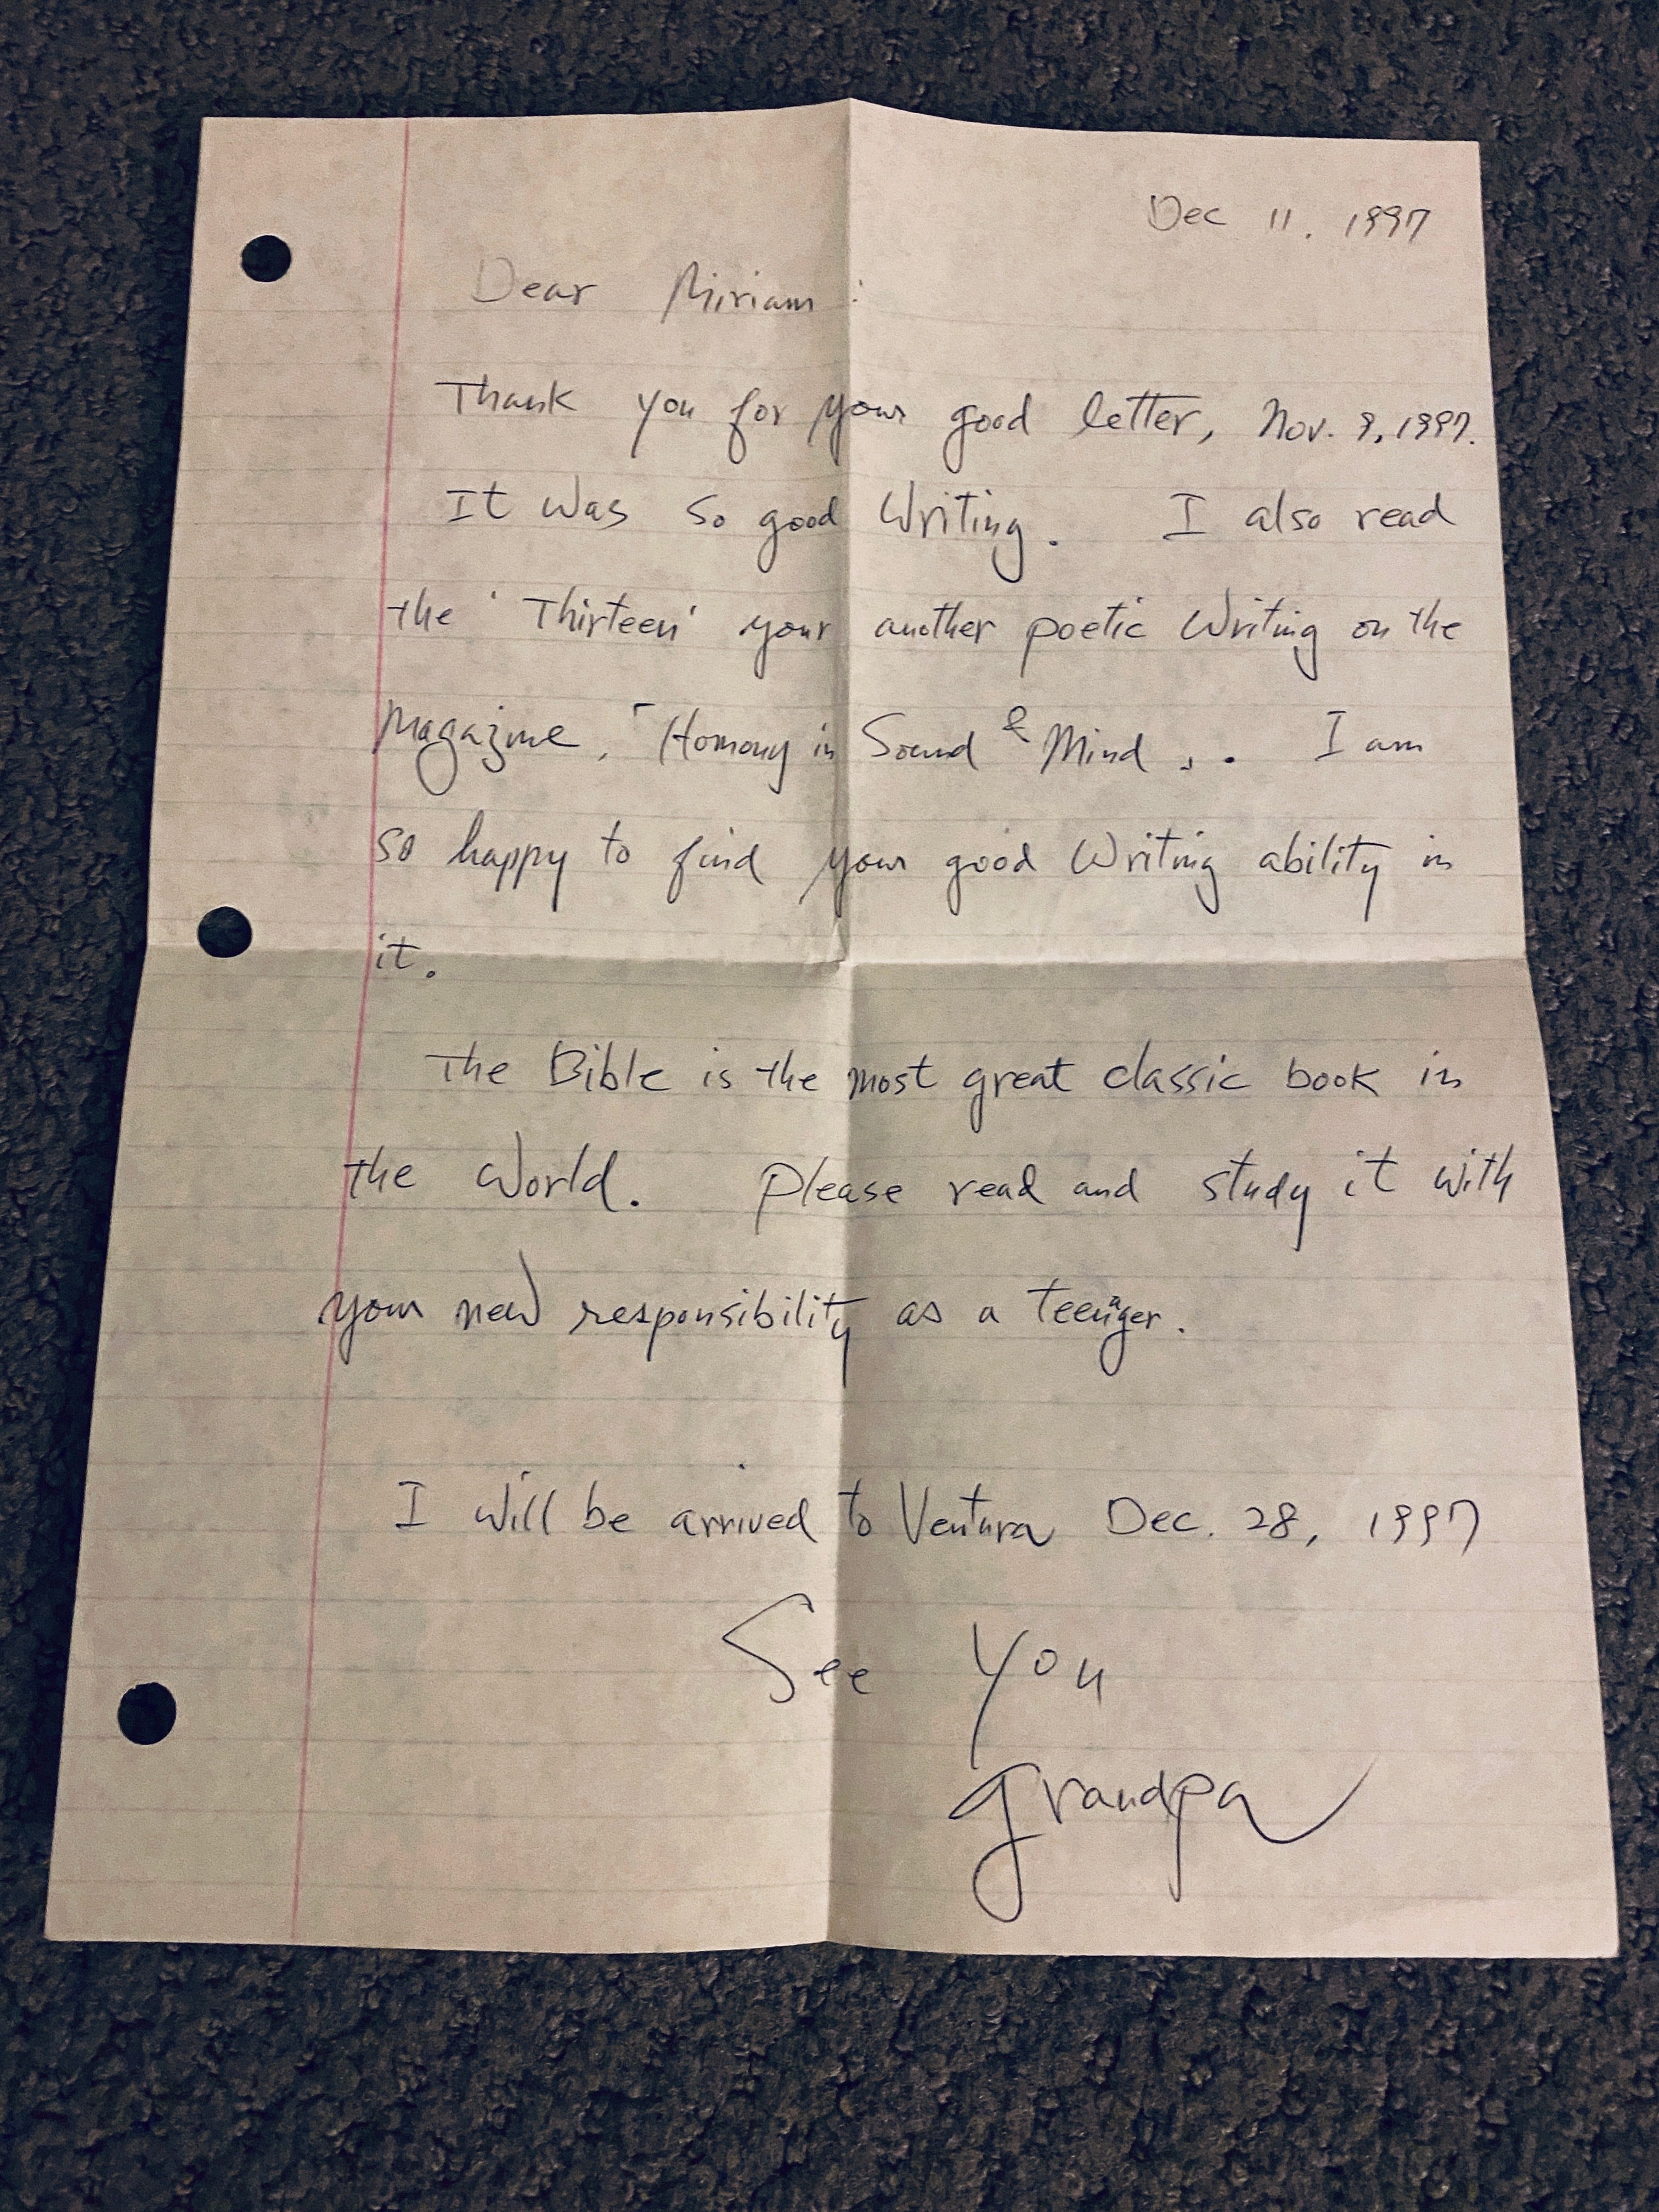 Dec 11. 1997
Dear Miriam :
Thank you for your good letter, Nov. 9, 1997.
It was so good Writing. I also read
the 'Thirteen' your another poetic Writing on the
Magazine, 「Homony in Sound & Mind」. I am
so happy to find your good Writing ability in
it.
The Bible is the most great classic book in
the World. Please read and study it with
your new responsibility as a teenager.
I will be arrived to Ventura Dec. 28, 1997
See You
Grandpa